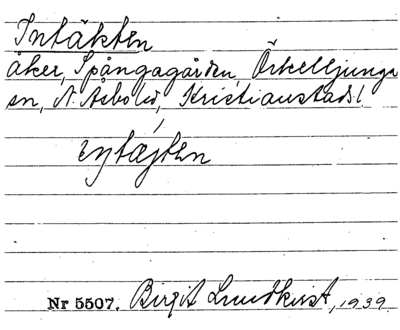 Intäkten
åker, Spångagården, Örkelljunga
sn, N. Åsbo hd, Kristianstads l.
Nr 5507. Birgit Lundkvist, 1939.